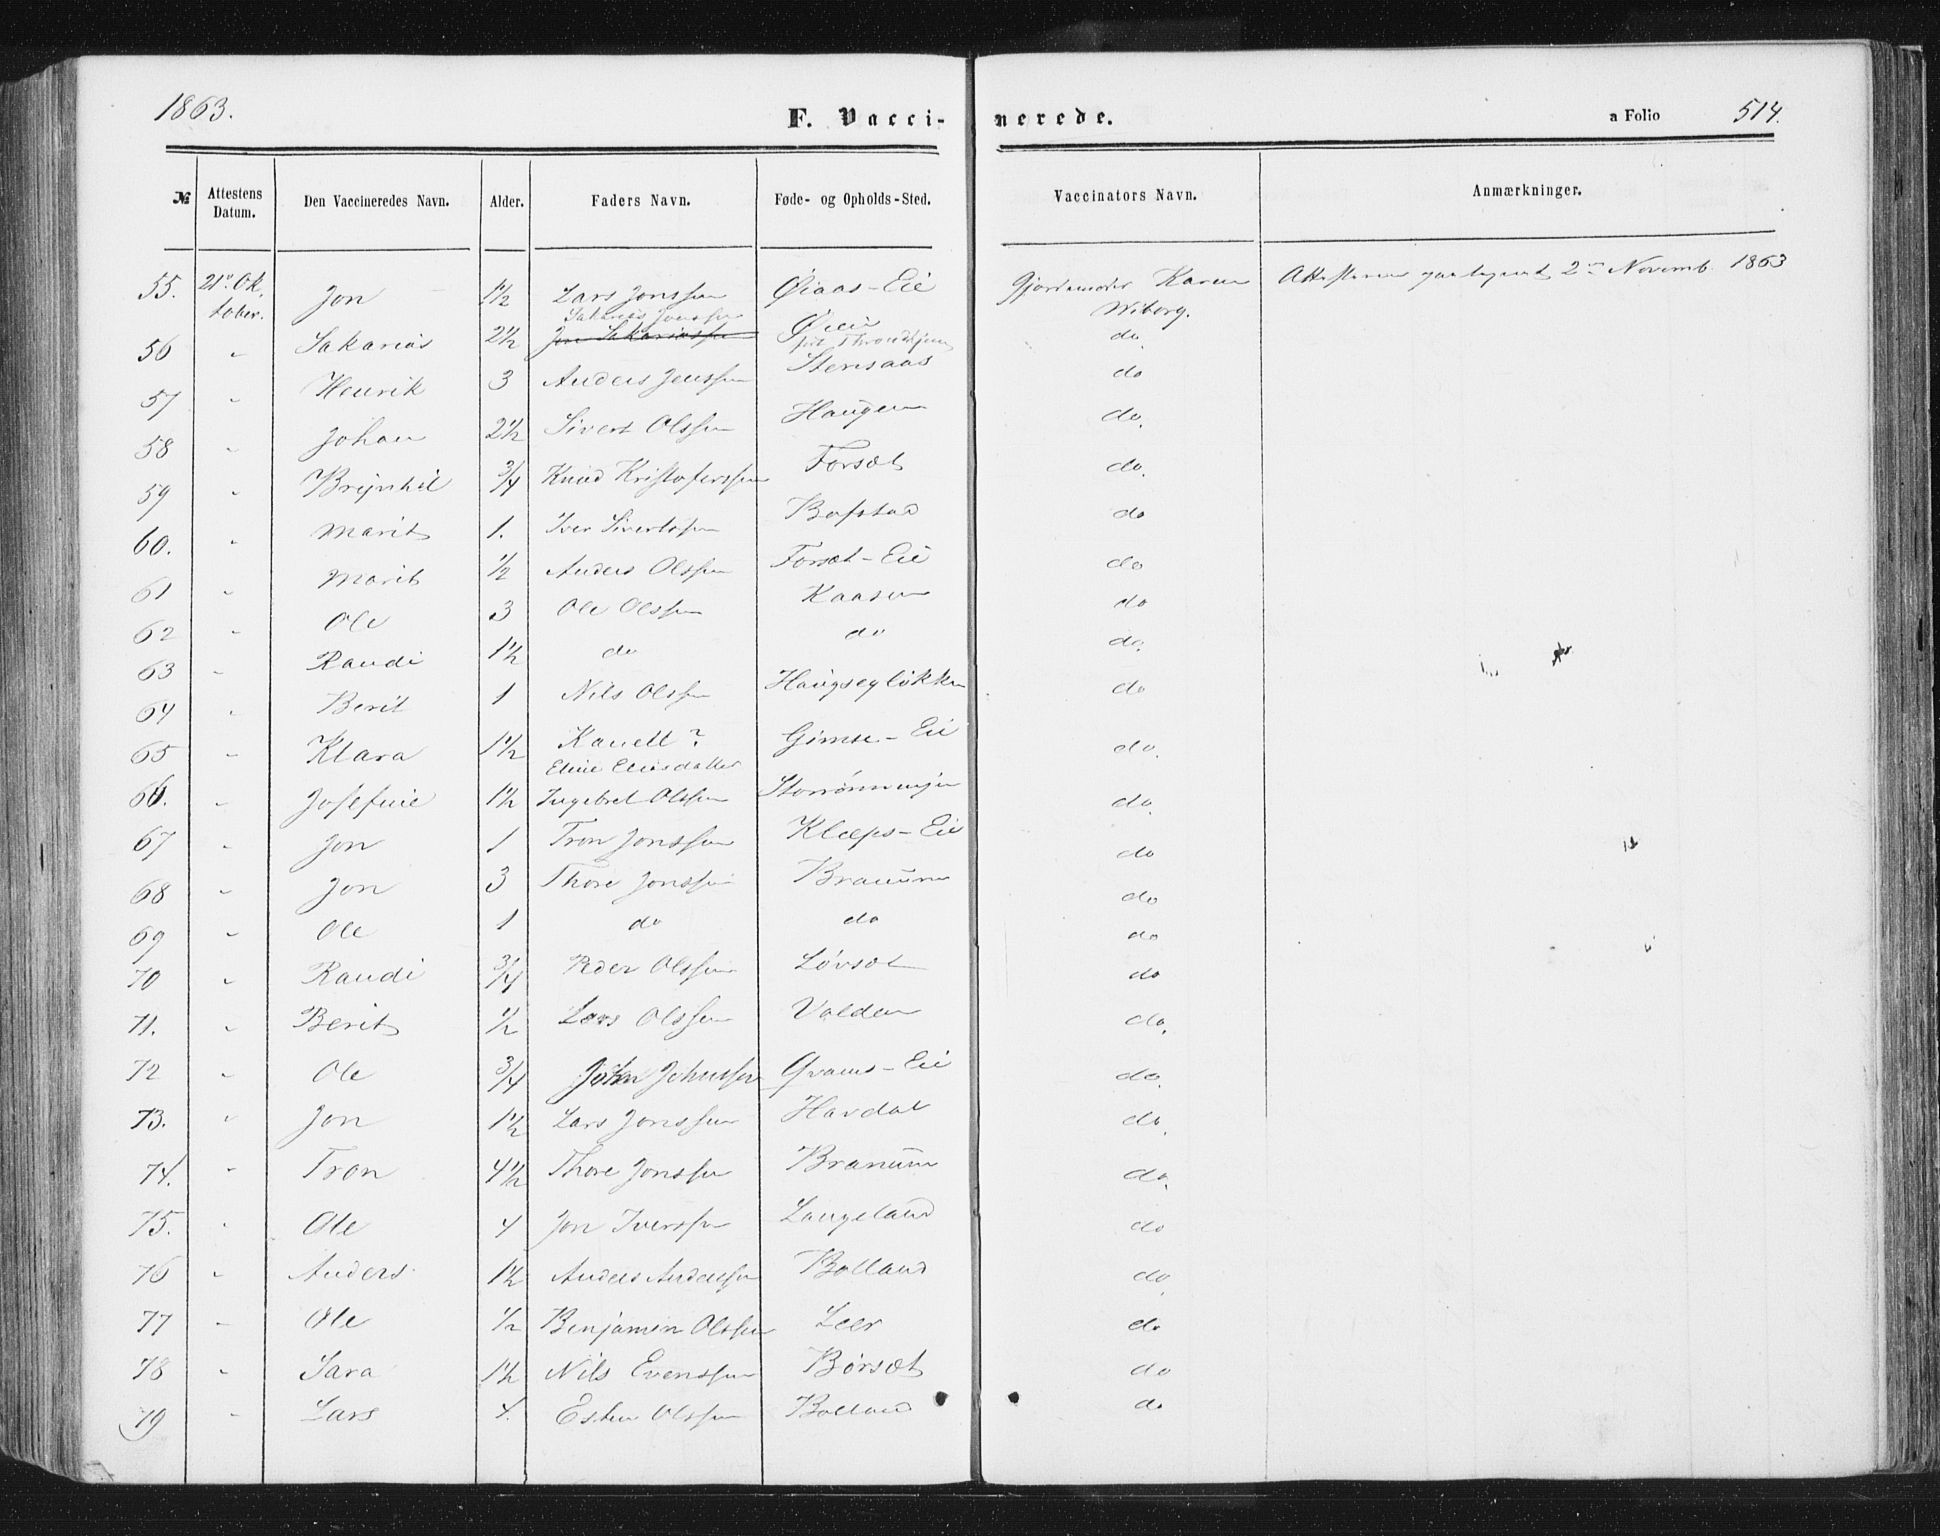 1863.
F. Vaccinerede.
a Folio 514.
№ | Attestens Datum. | Den Vaccineredes Navn. | Alder. | Faders Navn. | Føde- og Opholds-Sted. | Vaccinators Navn. | Anmærkninger.
55. 21de Oktober. Jon 1 1/2 Lars Jonssen Øiaas-Eie Gjordemoder Karen Wiborg. 2den Novemb. 1863
56 " Sakarias 2 1/2 Sakarias Jonssen Jon Sakariassen Øien Throndhjem do.
57 " Henrik 3 Anders Jenssen Stensaas do
58 " Johan 2 1/2 Sivert Olssen Haugen do.
59 " Brynhil 3/4 Knud Kristofersen Forsæt do.
60. " Marit 1. Iver Sivertssen Bofstad do
61 " Marit 1/2 Anders Olssen Forsæt-Eie do
62 " Ole 3 Ole Olssen Kaasen do
63 " Randi 1 1/2 do do do.
64 " Berit 1 Nils Olssen Haugsegløkken do
65 " Klara 1 1/2 Kanell? Eline Eliasdatter Gimse-Eie do.
66. " Josefine 1 1/2 Ingebret Olssen Storrønningen do.
67 " Jon 1 Tron Jonssen Klæps-Eie do
68 " Jon 3 Thore Jonssen Branum do
69 " Ole 1 do do do
70 " Randi 3/4 Peder Olssen Løvset do
71. " Berit 1/2 Lars Olssen Volden do.
72 " Ole 3/4 John Johnssen Qvams-Eie do.
73. " Jon 1 1/2 Lars Jonssen Havdal do.
74. " Tron 4 1/2 Thore Jonssen Branum do.
75. " Ole 4 Jon Iverssen Langeland do
76 " Anders 1 1/2 Anders Anderssen Bolland do.
77 " Ole 1/2 Benjamin Olssen Leer do
78 " Sara 1 1/2 Nils Evenssen Børsæt do
79 " Lars 4. Esten Olssen Bolland do